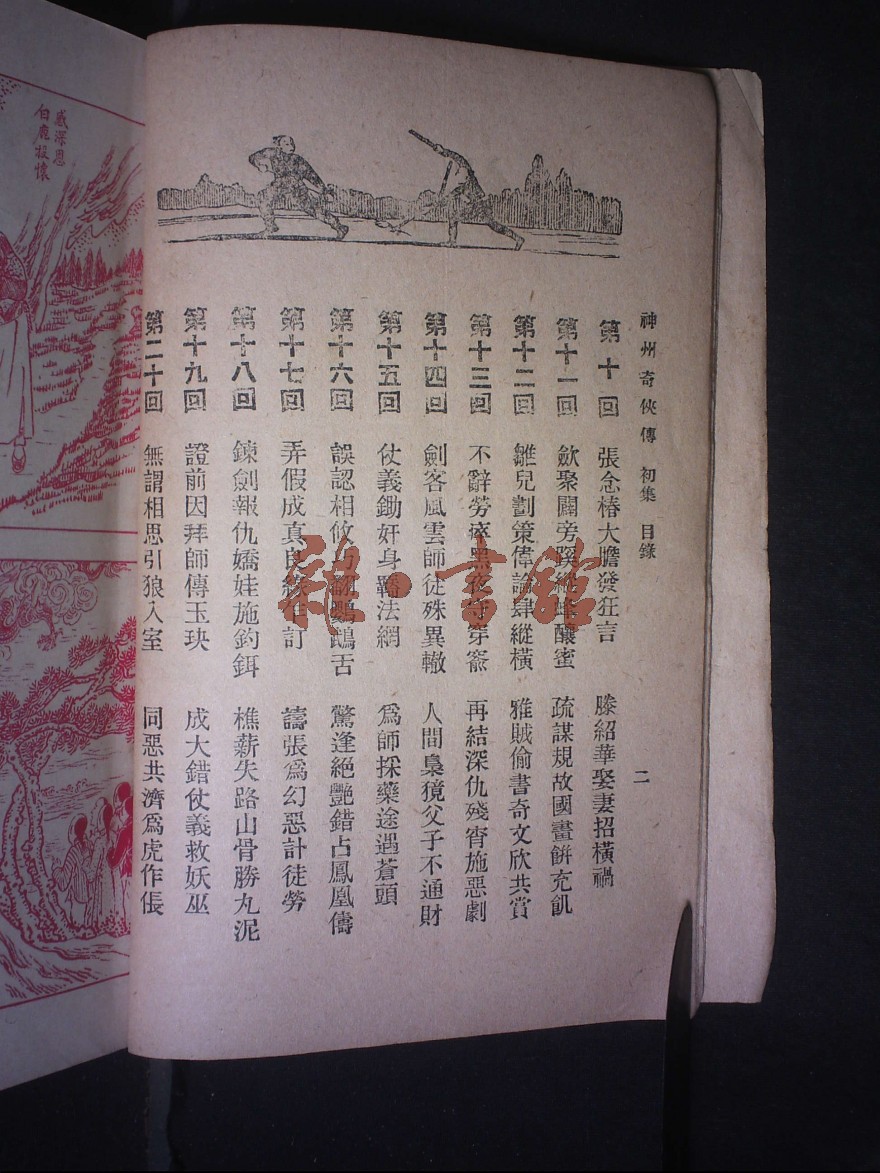 神州奇俠傳 初集 目錄
二
第十回 張念椿大膽發狂言 滕紹華娶妻招橫禍
第十一回 歛聚闢旁蹊 釀蜜 疏謀規故國畫餅充飢
第十二回 雛兒劃策偉論肆縱橫 雅賊偷書奇文欣共賞
第十三回 不辭勞瘁黑夜守穿窬 再結深仇殘宵施惡劇
第十四回 劍客風雲師徒殊異轍 人間梟獍父子不通財
第十五回 仗義鋤奸身羈法網 爲師採藥途遇蒼頭
第十六回 誤認相攸巧翻鸚鵡舌 驚逢絕艷錯占鳳凰儔
第十七回 弄假成真良緣 訂 譸張爲幻惡計徒勞
第十八回 鍊劍報仇嬌娃施鈎鉺 樵薪失路山骨勝丸泥
第十九回 證前因拜師傳玉玦 成大錯仗義救妖巫
第二十回 無謂相思引狼入室 同惡共濟爲虎作倀
感深恩
白鹿投懷
書館